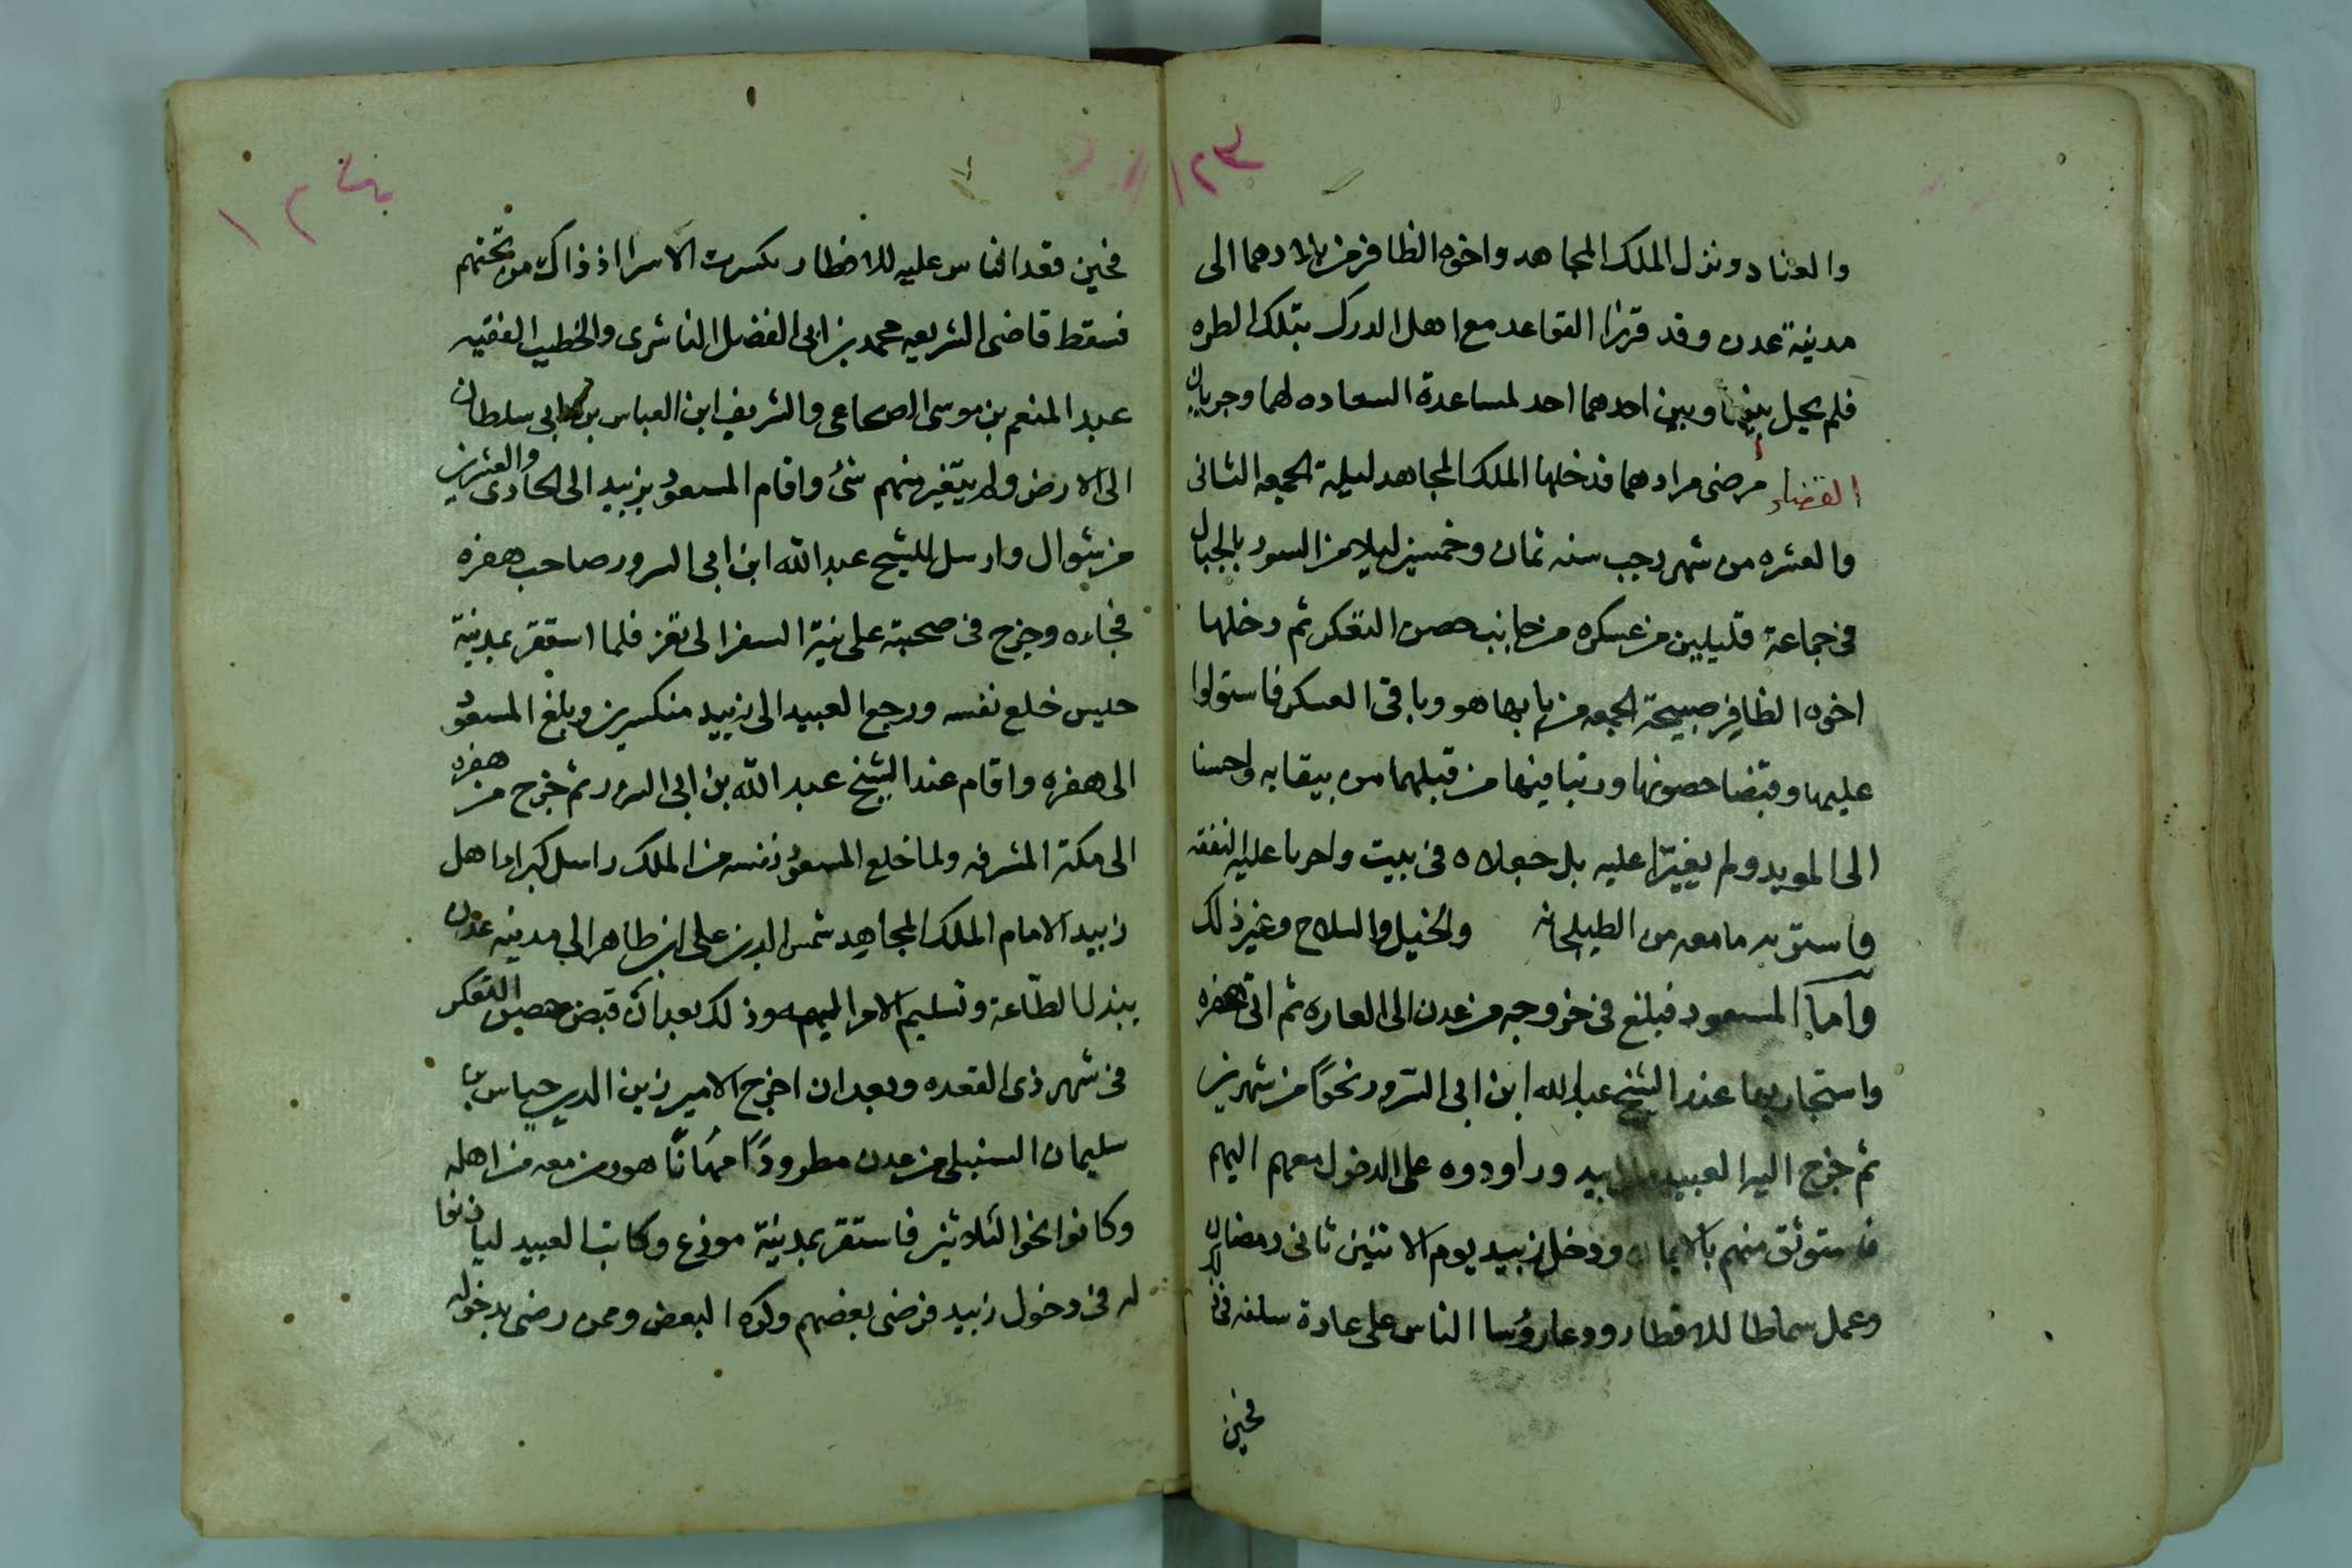 ١٢٣
والعناد ونزل الملك المجاهد واخوه الظافر من بلادهما الى
مدينة عدن وقد قررا القواعد مع اهل الدرك بتلك الطره
فلم يحيل بينها وبين احدهما احد لمساعدة السعاده لهما وجريان
القضاء مرضى مرادهما فدخلها الملك المجاهد ليلة الجمعه الثانى
والعشره من شهر رجب سنه ثمان وخمسين ليلا من السور بالجبال
فى جماعة قليلين من عسكره من جانب حصن التعكر ثم دخلها
اخوه الظافر صبيحة الجمعه من بابها هو وباقى العسكر فاستولوا
عليها وقبضا حصونها ورتبا فيها من قبلهما من يبقا به واحسنا
الى المويد ولم يغيرا عليه بل جعلاه فى بيت واجريا عليه النفقه
فاستو به ما معه من الطبلخانه والخيل والسلاح وغير ذلك
واما المسعود فبلغ فى خروجه من عدن الى العاره ثم اتى هقره
واستجار بها عند الشيخ عبد الله ابن ابى السرور نحوًا من شهرين
ثم خرج اليه العبيد زبيد وراودوه على الدخول معهم اليهم
فاستوثق منهم بالايمان ودخل زبيد يوم الاثنين ثانى رمضان
وعمل سماطا للافطار ودعا رؤسا الناس على عادة سلفه فى ذلك
فحين
١٢٤
فحين قعد الناس عليه للافطار تكسرت الاسرا اذ ذاك من تحتهم
فسقط قاضى الشريعه محمد بن ابى الفضل الناشرى والخطيب الفقيه
عبد المنعم بن موسى الصحاعى والشريف ابن العباس بن ابى سلطان
الى الارض ولم يتغير منهم شئ واقام المسعود بزبيد الى الحادى والعشرين
من شوال وارسل للشيخ عبد الله ابن ابى السرور صاحب هقره
فجاءه وخرج فى صحبته على نية السفر الى تعز فلما استقر بمدينة
حيس خلع نفسه ورجع العبيد الى زبيد منكسرين وبلغ المسعود
الى هقره واقام عند الشيخ عبد الله بن ابى السرور ثم خرج من هقره
الى مكة المشرفه ولما خلع المسعود نفسه من الملك راسل كبراء اهل
زبيد الامام الملك المجاهد شمس الدين على ابن طاهر الى مدينه عدن
ببذل الطاعة وتسليم الامر اليه وذلك بعد ان قبض حصن التعكر
فى شهر ذى القعده وبعد ان اخرج الامير زين الدين جياش بن
سليمان السنبلى من عدن مطرودًا مهانًا هو ومن معه من اهله
وكانوا نحو الثلاثين فاستقر بمدينة موزع وكاتب العبيد لياذنوا
له فى دخول زبيد فرضى بعضهم وكره البعض وممن رضى بدخوله